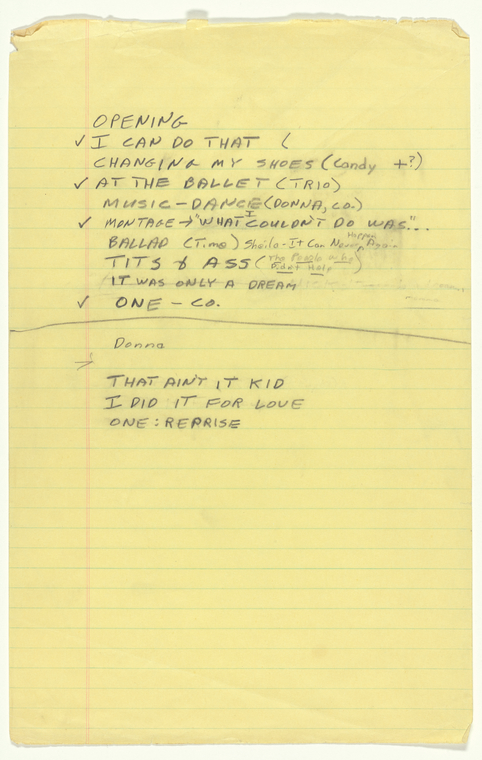 OPENING
✓ I CAN DO THAT (
CHANGING MY SHOES (Candy +?)
✓ AT THE BALLET (TRIO)
MUSIC-DANCE (DONNA, CO.)
✓ MONTAGE → "WHAT I COULDN'T DO WAS"...
BALLAD (Timo) Sheila - It Can Never Happen Again
TITS & ASS (The People who Didn't Help)
IT WAS ONLY A DREAM
✓ ONE - CO.
Donna
THAT AIN'T IT KID
I DID IT FOR LOVE
ONE: REPRISE